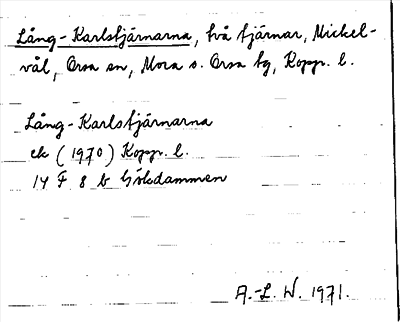 Lång-Karlstjärnarna, två tjärnar, Mickel-
vål, Orsa sn, Mora o. Orsa tg, Kopp. l.
Lång-Karlstjärnarna
ek (1970) Kopp. l.
14 F 8 b Göludammen
A.-L. W. 1971.